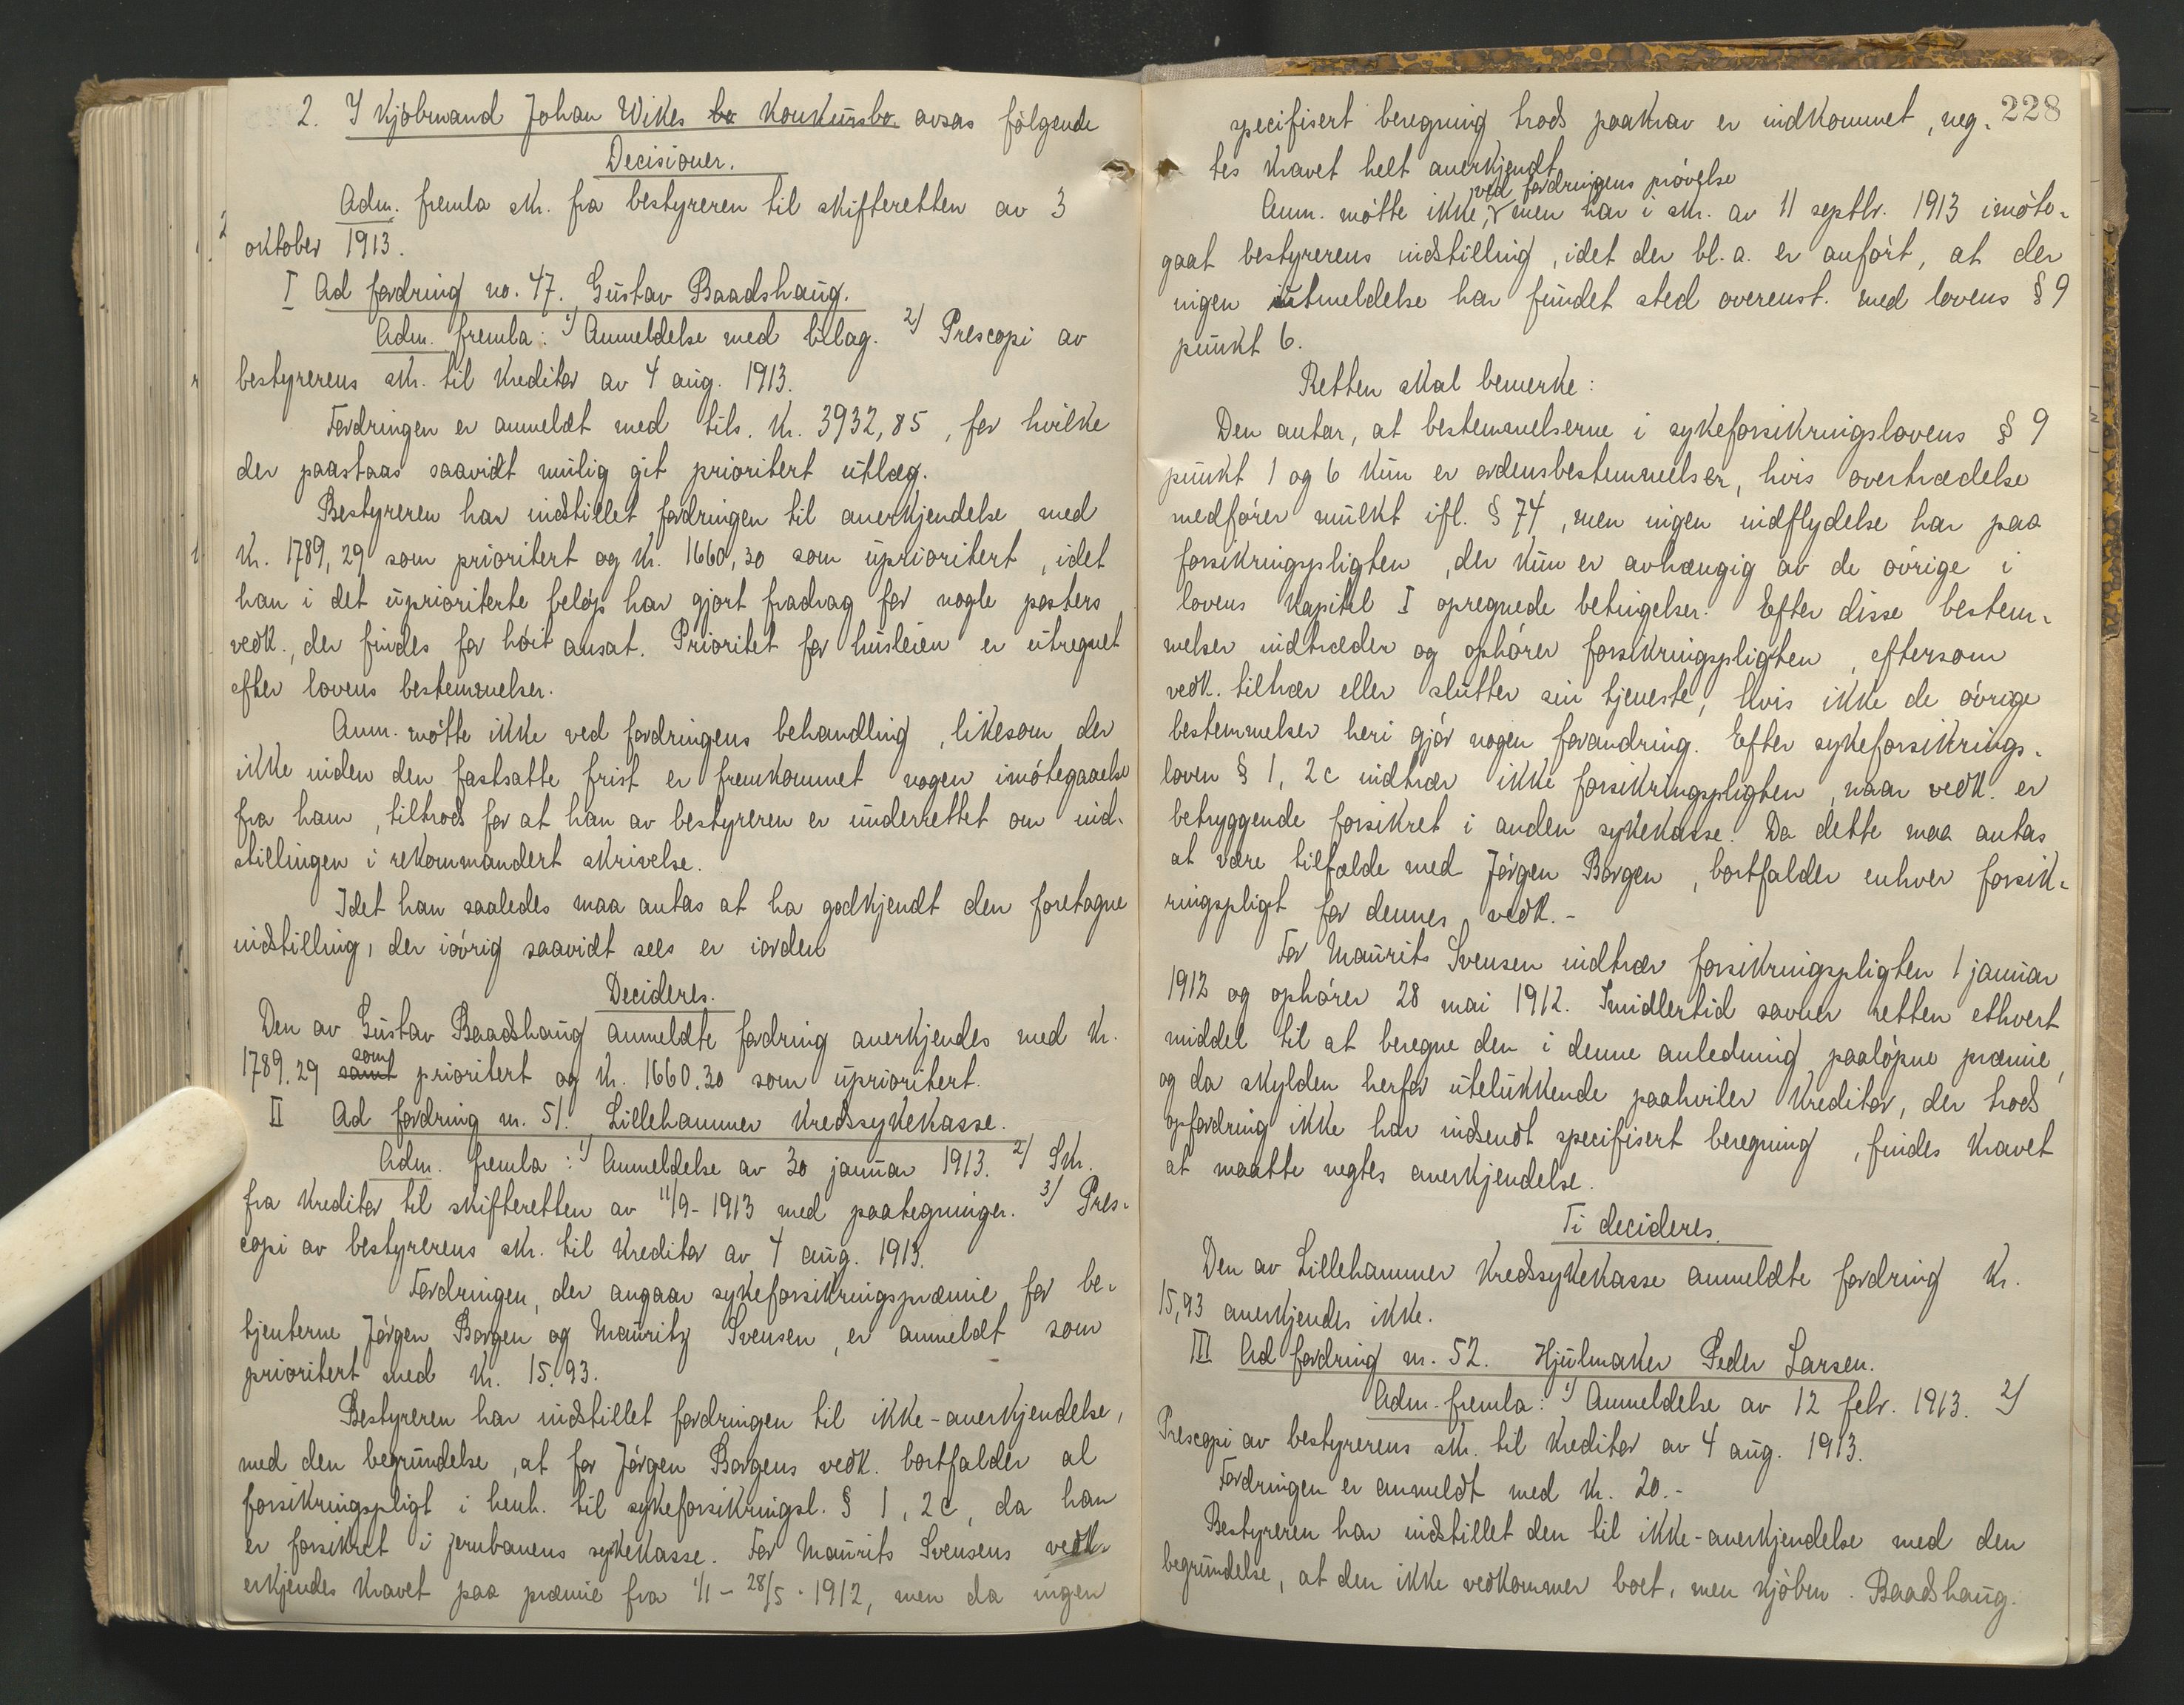 2. I kjøbmand Johan Wikes bo konkursbo avsas følgende
Decisioner.
Adm. fremla skr. fra bestyreren til skifteretten av 3
oktober 1913.
I Ad fordring no. 47. Gustav Baadshaug.
Adm. fremla: 1) Anmeldelse med bilag. 2) Prescopi av
bestyrerens skr. til kreditor av 4 aug. 1913.
Fordringen er anmeldt med tils. kr. 3932,85, for hvilke
der paastaas saavidt mulig git prioritert utlæg.
Bestyreren har indstillet fordringen til anerkjendelse med
kr. 1789,29 som prioritert og kr. 1660,30 som uprioritert, idet
han i det uprioriterte beløp har gjort fradrag for nogle posters
vedk., der findes for høit ansat. Prioritet for husleien er utregnet
efter lovens bestemmelser.
Anm. møtte ikke ved fordringens behandling, likesom der
ikke inden den fastsatte frist er fremkommet nogen imøtegaaelse
fra ham, tiltrods for at han av bestyreren er underrettet om ind-
stillingen i rekommandert skrivelse.
Idet han saaledes maa antas at ha godkjendt den foretagne
indstilling, der iøvrig saavidt sees er iorden
Decideres.
Den av Gustav Baadshaug anmeldte fordring anerkjendes med kr.
1789.29 samt som prioritert og kr. 1660.30 som uprioritert.
II Ad fordring nr. 51. Lillehammer kredssykekasse.
Adm. fremla: 1) Anmeldelse av 30 januar 1913. 2) Skr.
fra kreditor til skifteretten av 11/9-1913 med paategninger. 3) Pres-
copi av bestyrerens skr. til kreditor av 4 aug. 1913.
Fordringen, der angaar sykeforsikringspræmie for be-
tjenterne Jørgen Borgen og Mauritz Svensen, er anmeldt som
prioritert med kr. 15.93.
Bestyreren har indstillet fordringen til ikke-anerkjendelse,
med den begrundelse, at for Jørgen Borgens vedk. bortfalder al
forsikringspligt i henh. til sykeforsikringsl. § 1, 2c, da han
er forsikret i jernbanens sykekasse. For Maurits Svensens vedk.
erkjendes kravet paa præmie fra 1/1 - 28/5 - 1912, men da ingen
228
specifisert beregning trods paakrav er indkommet, neg-
tes kravet helt anerkjendt.
ved fordringens prøvelse
Anm. møtte ikke, men har i skr. av 11 septbr. 1913 imøte-
gaat bestyrerens indstilling, idet der bl. a. er anført, at der
ingen utmeldelse har fundet sted overenst. med lovens § 9
punkt 6.
Retten skal bemerke:
Den antar, at bestemmelserne i sykeforsikringslovens § 9
punkt 1 og 6 kun er ordensbestemmelser, hvis overtrædelse
medfører mulkt ifl. § 74, men ingen indflydelse har paa
forsikringspligten, der kun er avhængig av de øvrige i
lovens kapitel I opregnede betingelser. Efter disse bestem-
melser indtræder og ophører forsikringspligten, eftersom
vedk. tiltrær eller slutter sin tjeneste, hvis ikke de øvrige
bestemmelser heri gjør nogen forandring. Efter sykeforsikrings-
loven § 1, 2c indtrær ikke forsikringspligten, naar vedk. er
betryggende forsikret i anden sykekasse. Da dette maa antas
at være tilfælde med Jørgen Borgen, bortfalder enhver forsik-
ringspligt for dennes vedk. -
For Maurits Svensen indtrær forsikringspligten 1 januar
1912 og ophører 28 mai 1912. Imidlertid savner retten ethvert
middel til at beregne den i denne anledning paaløpne præmie,
og da skylden herfor utelukkende paahviler kreditor, der trods
opfordring ikke har indsendt specifisert beregning, findes kravet
at maatte negtes anerkjendelse.
Ti decideres.
Den av Lillehammer kredssykekasse anmeldte fordring kr.
15,93 anerkjendes ikke.
III Ad fordring nr. 52. Hjulmaker Peder Larsen.
Adm. fremla: 1) Anmeldelse av 12 febr. 1913. 2)
Prescopi av bestyrerens skr. til kreditor av 4 aug. 1913.
Fordringen er anmeldt med kr. 20.-
Bestyreren har indstillet den til ikke-anerkjendelse med den
begrundelse, at den ikke vedkommer boet, men kjøbm. Baadshaug.